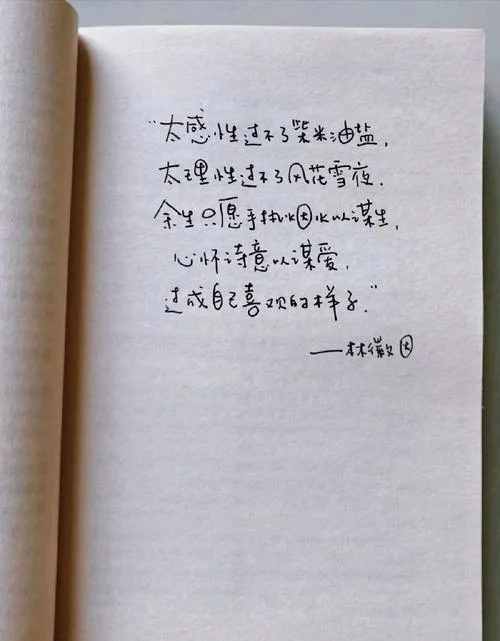 “太感性过不了柴米油盐，
太理性过不了风花雪夜.
余生只愿手执烟火以谋生，
心怀诗意以谋爱，
过成自己喜欢的样子.”
——林徽因